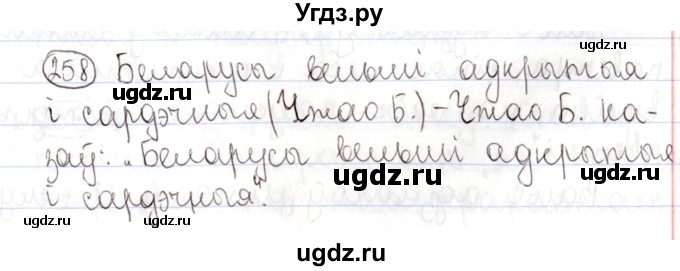 Угдз.ру
258 Беларусы вельмі адкрытыя
ugdz.ru ugdz.ru
і сардэчныя (Чжао Б.) – Чжао Б. ка-
ugdz.ru
заў: „Беларусы вельмі адкрытыя
ugdz.ru ugdz.ru
і сардэчныя“.
ugdz.ru ugdz.ru
ugdz.ru